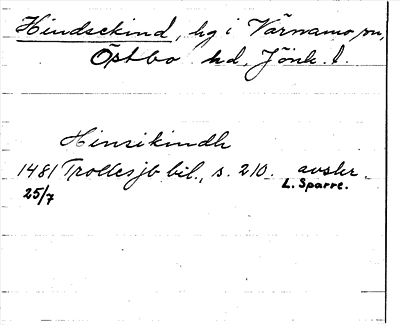 Hindsekind, hg i Värnamo sn,
Östbo hd, Jönk. l.
Hinsikindh
1481 Trollesjb bil., s. 210. avskr.
25/7 L. Sparre.